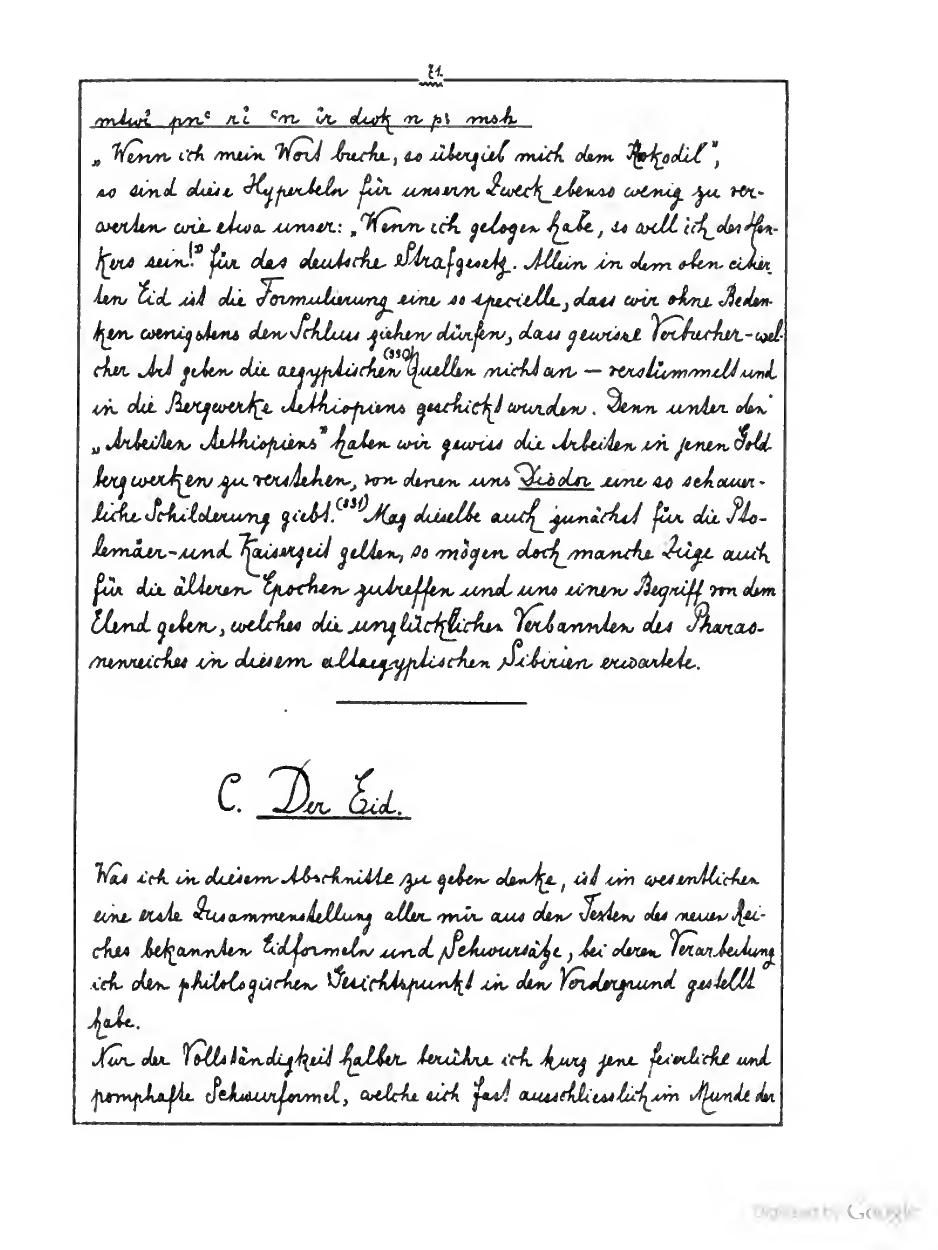 71.
mtwỉ pnꜥ rỉ ꜥn ỉr dwk n pꜣ msḥ
„Wenn ich mein Wort breche, so übergieb mich dem Krokodil",
so sind diese Hyperbeln für unsern Zweck ebenso wenig zu ver-
werten wie etwa unser: „Wenn ich gelogen habe, so will ich des Hen-
kers sein!" für das deutsche Strafgesetz. Allein in dem oben citier
ten Eid ist die Formulierung eine so specielle, dass wir ohne Beden-
ken wenigstens den Schluss ziehen dürfen, dass gewisse Verbrecher – wel-
cher Art geben die aegyptischen (330) Quellen nicht an – verstümmelt und
in die Bergwerke Aethiopiens geschickt wurden. Denn unter den
„Arbeiten Aethiopiens" haben wir gewiss die Arbeiten in jenen Gold
bergwerken zu verstehen, von denen uns Diodor eine so schauer-
liche Schilderung giebt. (331) Mag dieselbe auch zunächst für die Pto-
lemäer- und Kaiserzeit gelten, so mögen doch manche Züge auch
für die älteren Epochen zutreffen und uns einen Begriff von dem
Elend geben, welches die unglücklichen Verbannten des Pharao-
nenreiches in diesem altaegyptischen Sibirien erwartete.
C. Der Eid.
Was ich in diesem Abschnitte zu geben denke, ist im wesentlichen
eine erste Zusammenstellung aller mir aus den Texten des neuen Rei-
ches bekannten Eidformeln und Schwursätze, bei deren Verarbeitung
ich den philologischen Gesichtspunkt in den Vordergrund gestellt
habe.
Nur der Vollständigkeit halber berühre ich kurz jene feierliche und
pomphafte Schwurformel, welche sich fast ausschliesslich im Munde der
Digitized by Google